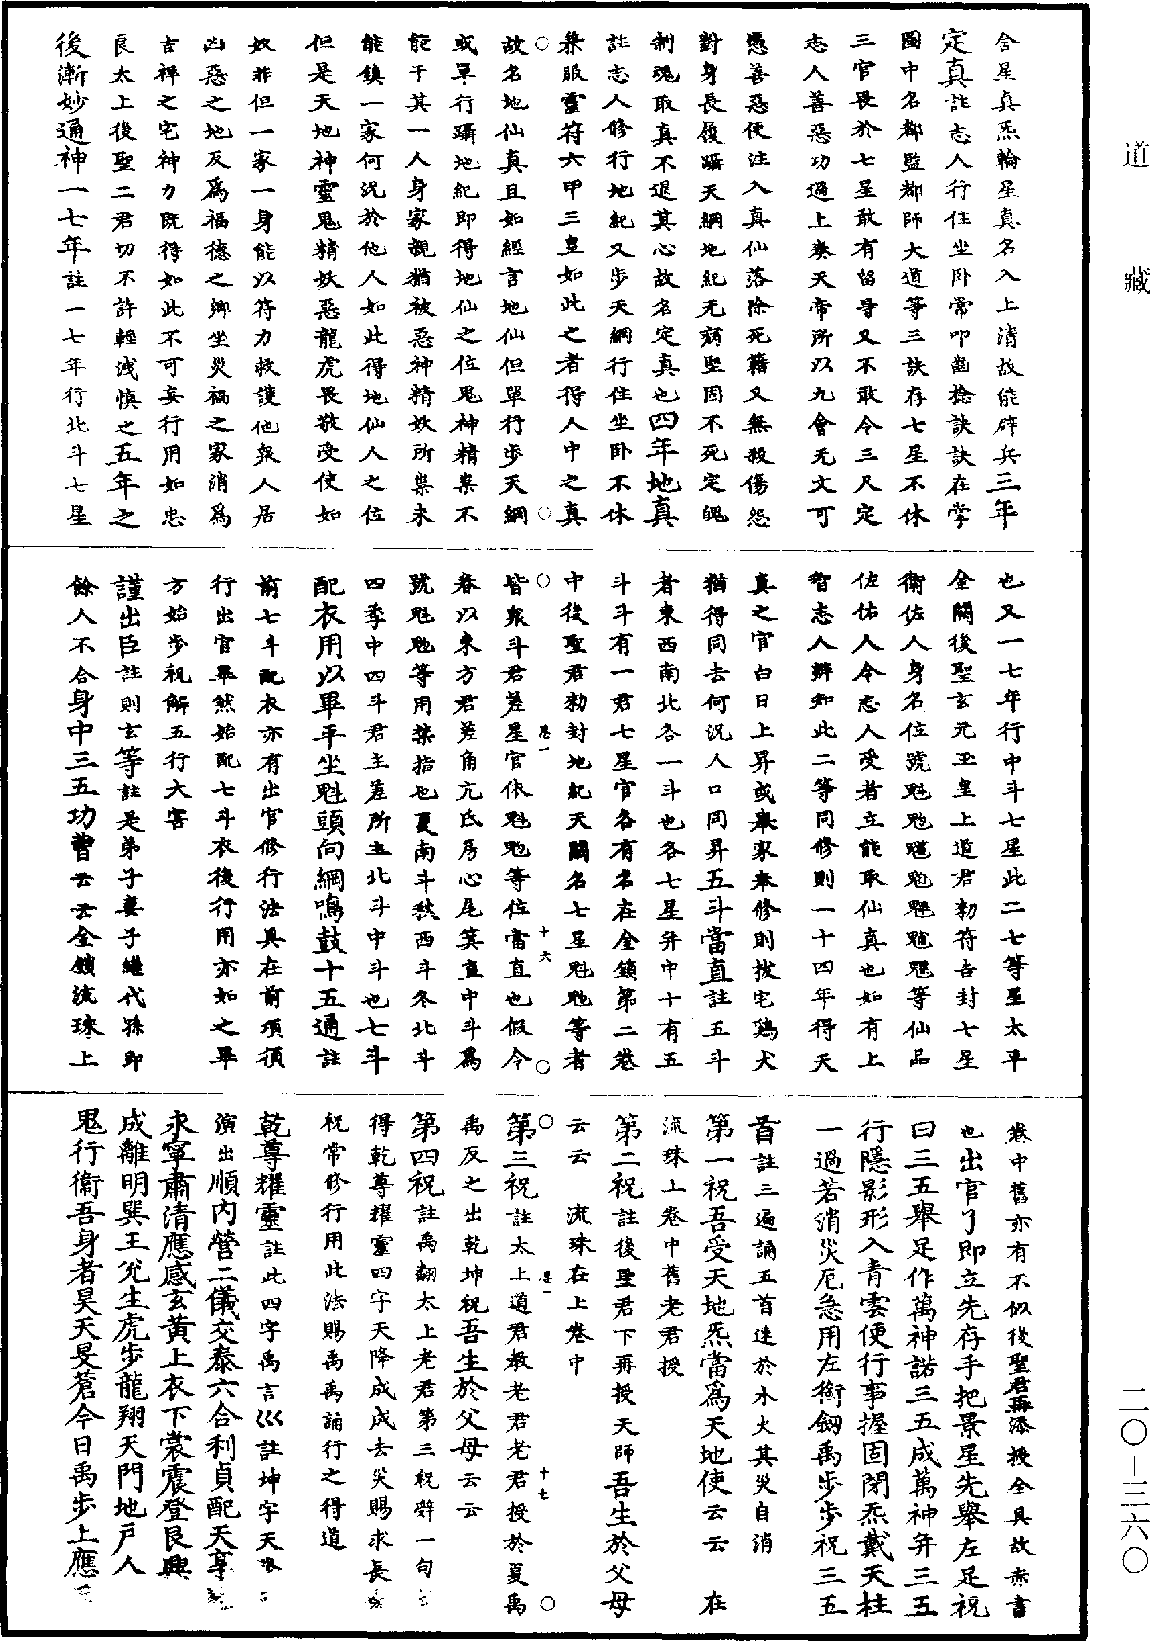 道藏
合星真炁輪星真名入上清故能辟兵三年
定真註志人行住坐卧常叩齒捻訣訣在掌
圖中名都監都師大道等三訣存七星不休
三官畏於七星敢有留身又不敢令三尺定
志人善惡功過上奏天帝所以九會无文可
慿善惡便注入真仙落除死籍又無殺傷怨
對身長履躡天綱地紀无病堅固不死定魄
制魂取真不退其心故名定真也四年地真
註志人修行地紀又步天綱行住坐卧不休
兼服靈符六甲三皇如此之者得人中之真
故名地仙真且如經言地仙但單行步天綱
或單行躡地紀即得地仙之位鬼神精祟不
能干其一人身家親猶被惡神精妖所祟未
能鎮一家何況於他人如此得地仙人之位
但是天地神靈鬼精妖惡龍虎畏敬受使如
奴非但一家一身能以符力救護他衆人居
凶惡之地反爲福德之鄉坐災禍之家消爲
吉祥之宅神力既得如此不可妄行用如忠
良太上後聖二君切不許輕洩慎之五年之
後漸妙通神一七年註一七年行北斗七星
也又一七年行中斗七星此二七等星太平
金闕後聖玄元玉皇上道君勑符告封七星
衛佐人身名位號魁䰢魓䰢魒魓魒等仙品
佐佑人令志人受者立能取仙真也如有上
智志人辨知此二等同修則一十四年得天
真之官白日上昇或舉家奉修則拔宅鷄犬
猶得同去何況人口同昇五斗當直註五斗
者東西南北各一斗也各七星并中十有五
斗斗有一君七星官各有名在金鎖第二卷
中後聖君勑封地紀天關名七星魁䰢等者
皆衆斗君差星官依魁䰢等位當直也假今
春以東方君差角亢氐房心尾箕直中斗爲
號魁䰢等用禁指也夏南斗秋西斗冬北斗
四季中四斗君主差所主北斗中斗也七斗
配衣用以單平坐魁頭向綱鳴鼓十五通註
前七斗配衣亦有出官修行法具在前項須
行出官畢然始配七斗衣後行用亦如之畢
方始步祝解五行大害
謹出臣註則玄等註是弟子妻子繼代孫即
餘人不合身中三五功曹云云金鎖流珠上
卷中舊亦有不似後聖君再添授全具故未書
也出官了即立先存手把景星先舉左足祝
曰三五舉足作萬神諾三五成萬神并三五
行隱影形入青雲便行事握固閉炁戴天柱
一過若消災厄急用左銜劒禹步步祝三五
首註三遍誦五首速於水火其災自消
第一祝吾受天地炁當爲天地使云云　在
流珠上卷中舊老君授
第二祝註後聖君下再授天師吾生於父母
云云　流珠在上卷中
第三祝註太上道君教老君老君授於夏禹
禹反之出乾坤祝吾生於父母云云
第四祝註禹翻太上老君第三祝辟一句
得乾尊耀靈四字天降成成去災賜求長
祝常修行用此法賜禹禹誦行之得道
乾尊耀靈註此四字禹言巛註坤字天
演出順內營二儀交泰六合利貞配天享
永寧肅清應感玄黃上衣下裳震登艮興
成離明巽王兊生虎步龍翔天門地戶人
鬼行衞吾身者昊天旻蒼今日禹步上應
卷一　十六
卷一　十七
二〇－三六〇